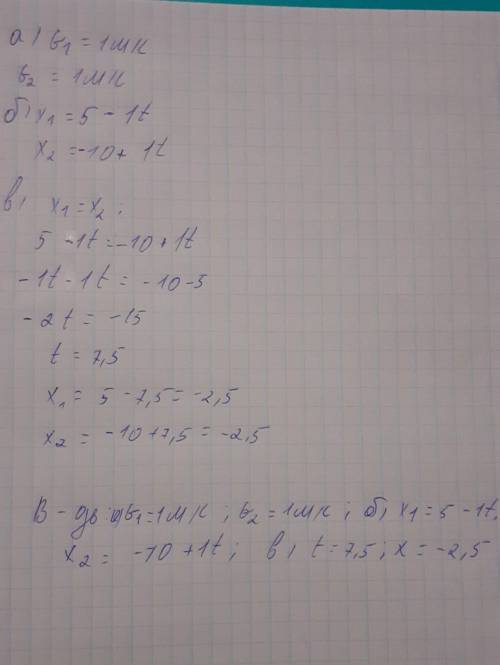 а) υ₁ = 1 м/с
υ₂ = 1 м/с
б) x₁ = 5 - 1t
x₂ = -10 + 1t
в) x₁ = x₂;
5 - 1t = -10 + 1t
-1t - 1t = -10 - 5
-2t = -15
t = 7,5
x₁ = 5 - 7,5 = -2,5
x₂ = -10 + 7,5 = -2,5
В-дь: а) υ₁ = 1 м/с; υ₂ = 1 м/с; б) x₁ = 5 - 1t,
x₂ = -10 + 1t; в) t = 7,5; x = -2,5